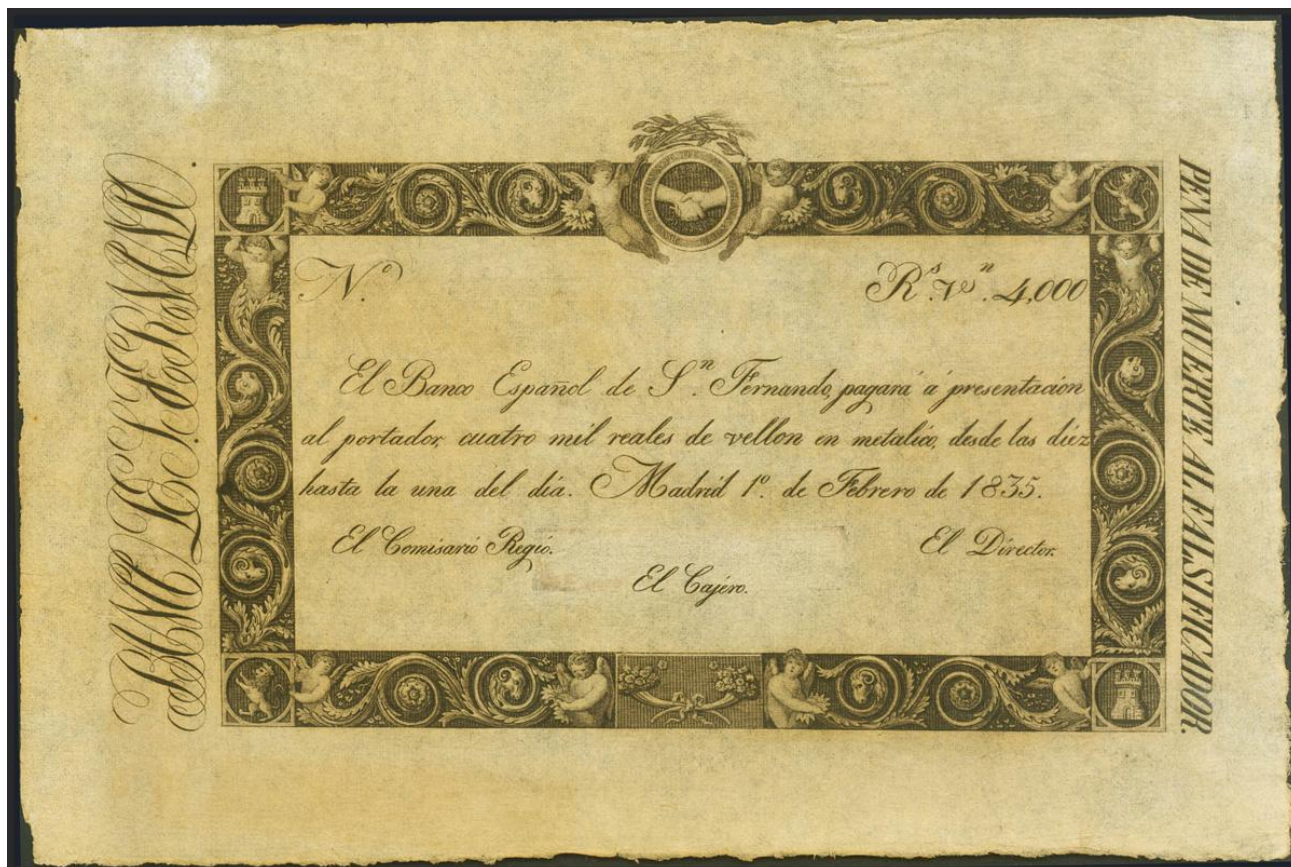 BANCO ESPAÑOL DE S. FERNANDO
Nº
Rˢ. Vⁿ. 4,000
El Banco Español de Sⁿ. Fernando, pagará á presentacion
al portador, cuatro mil reales de vellon en metalico, desde las diez
hasta la una del dia. Madrid 1º. de Febrero de 1835.
El Comisario Regio.
El Director.
El Cajero.
PENA DE MUERTE AL FALSIFICADOR.